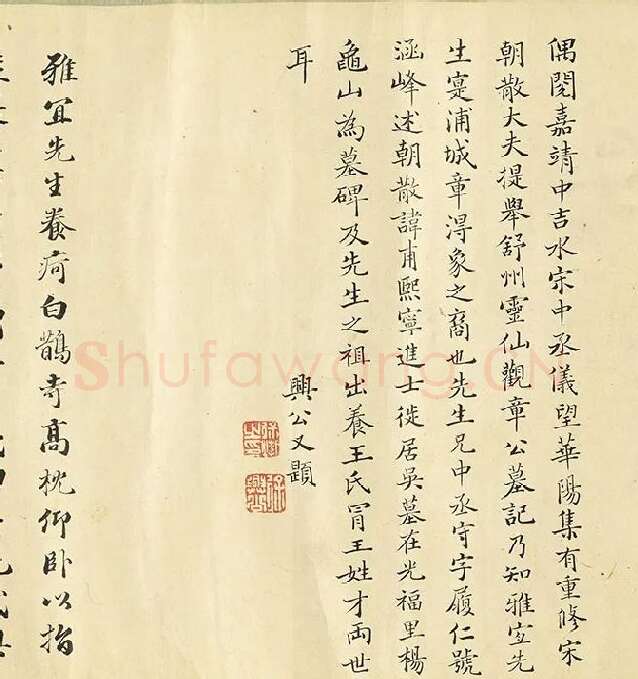 偶閱嘉靖中吉水宋中丞儀望華陽集有重修宋
朝散大夫提舉舒州靈仙觀章公墓記乃知雅宜先
生寔浦城章淂象之裔也先生兄中丞守字履仁號
涵峰述朝散諱甫熙寧進士徙居吳墓在光福里楊
龜山為墓碑及先生之祖出養王氏冐王姓才兩世
耳
興公又題
雅宜先生養疴白鵲寺高枕仰卧以指
Shufawang.CN